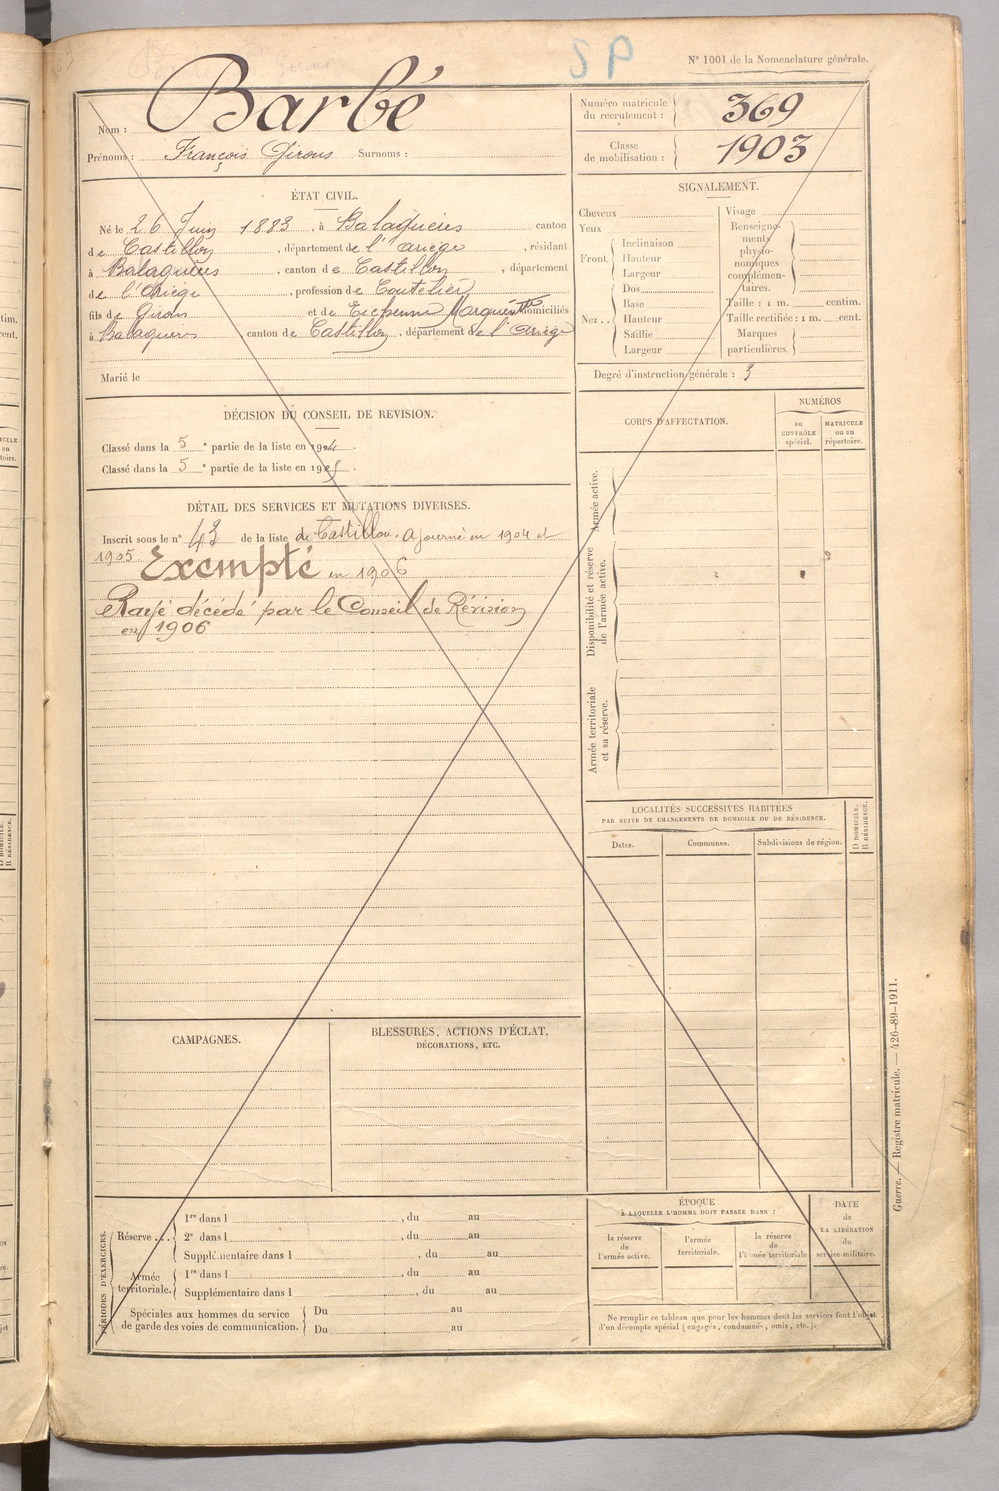 SP
N° 1001 de la Nomenclature générale.
Nom : Barbé
Prénoms : François Girons Surnoms :
Numéro matricule du recrutement : 369
Classe de mobilisation : 1903
ÉTAT CIVIL.
Né le 26 Juin 1883, à Balaguères canton
de Castillon, département de l'Ariège, résidant
à Balaguères, canton de Castillon, département
de l'Ariège, profession de Coutelier
fils de Girons et de Marguerite domiciliés
à Balaguères canton de Castillon, département de l'Ariège
Marié le
SIGNALEMENT.
Cheveux
Yeux
Front. Inclinaison
Hauteur
Largeur
Nez.. Dos
Base
Hauteur
Saillie
Largeur
Visage
Renseigne-
ments
physio-
nomiques
complémen-
taires.
Taille : 1 m. centim.
Taille rectifiée : 1 m. cent.
Marques
particulières.
Degré d'instruction générale : 3
DÉCISION DU CONSEIL DE REVISION.
Classé dans la 5e partie de la liste en 1904.
Classé dans la 5e partie de la liste en 1905.
DÉTAIL DES SERVICES ET MUTATIONS DIVERSES.
Inscrit sous le n° 43 de la liste de Castillon. Ajourné en 1904 et
1905 Exempté en 1906
Rayé décédé par le Conseil de Révision
en 1906
CORPS D'AFFECTATION.
NUMÉROS
au
CONTRÔLE
spécial.
MATRICULE
ou au
répertoire.
Armée active.
Disponibilité et réserve
de l'armée active.
Armée territoriale
et sa réserve.
LOCALITÉS SUCCESSIVES HABITÉES
PAR SUITE DE CHANGEMENTS DE DOMICILE OU DE RÉSIDENCE.
Dates.
Communes.
Subdivisions de région.
D DOMICILE.
R RÉSIDENCE.
CAMPAGNES.
BLESSURES, ACTIONS D'ÉCLAT,
DÉCORATIONS, ETC.
PÉRIODES D'EXERCICES.
Réserve... 1re dans l , du au
2e dans l , du au
Supplémentaire dans l , du au
Armée territoriale. 1re dans l , du au
Supplémentaire dans l , du au
Spéciales aux hommes du service
de garde des voies de communication.
Du au
Du au
ÉPOQUE
À LAQUELLE L'HOMME DOIT PASSER DANS :
la réserve
de
l'armée active.
l'armée
territoriale.
la réserve
de
l'armée territoriale
DATE
de
LA LIBÉRATION
du
service militaire.
Ne remplir ce tableau que pour les hommes dont les services font l'objet
d'un décompte spécial (engagés, condamnés, omis, etc.).
Guerre. — Registre matricule. — 426-89-1911.